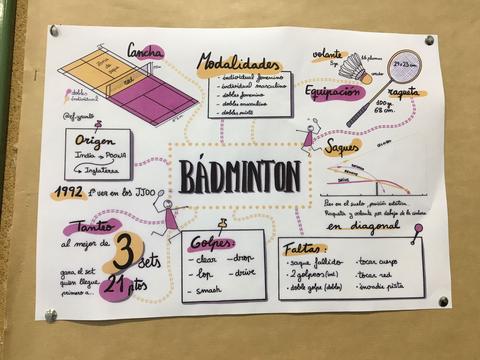 Cancha
zona de
saque
red
dobles
individual
@ef.yonto
Modalidades
- individual femenino
- individual masculino
- dobles femenino
- dobles masculino
- dobles mixto
volante
5g.
16 plumas
corcho
Equipación
raqueta
23x23 cm.
100 gr.
68 cm.
Origen
India → POONA
↳ Inglaterra
1992 1ª vez en los JJOO
BÁDMINTON
Saques
Pies en el suelo, posición estática.
Raqueta y volante por debajo de la cintura
en diagonal
Tanteo
al mejor de 3 sets
gana el set
quien llegue
primero a...
21 ptos
Golpes:
- clear
- drop
- lop
- drive
- smash
Faltas:
• saque fallido
• tocar cuerpo
• 2 golpeos (ind.)
• tocar red
• doble golpe (dobles)
• invadir pista